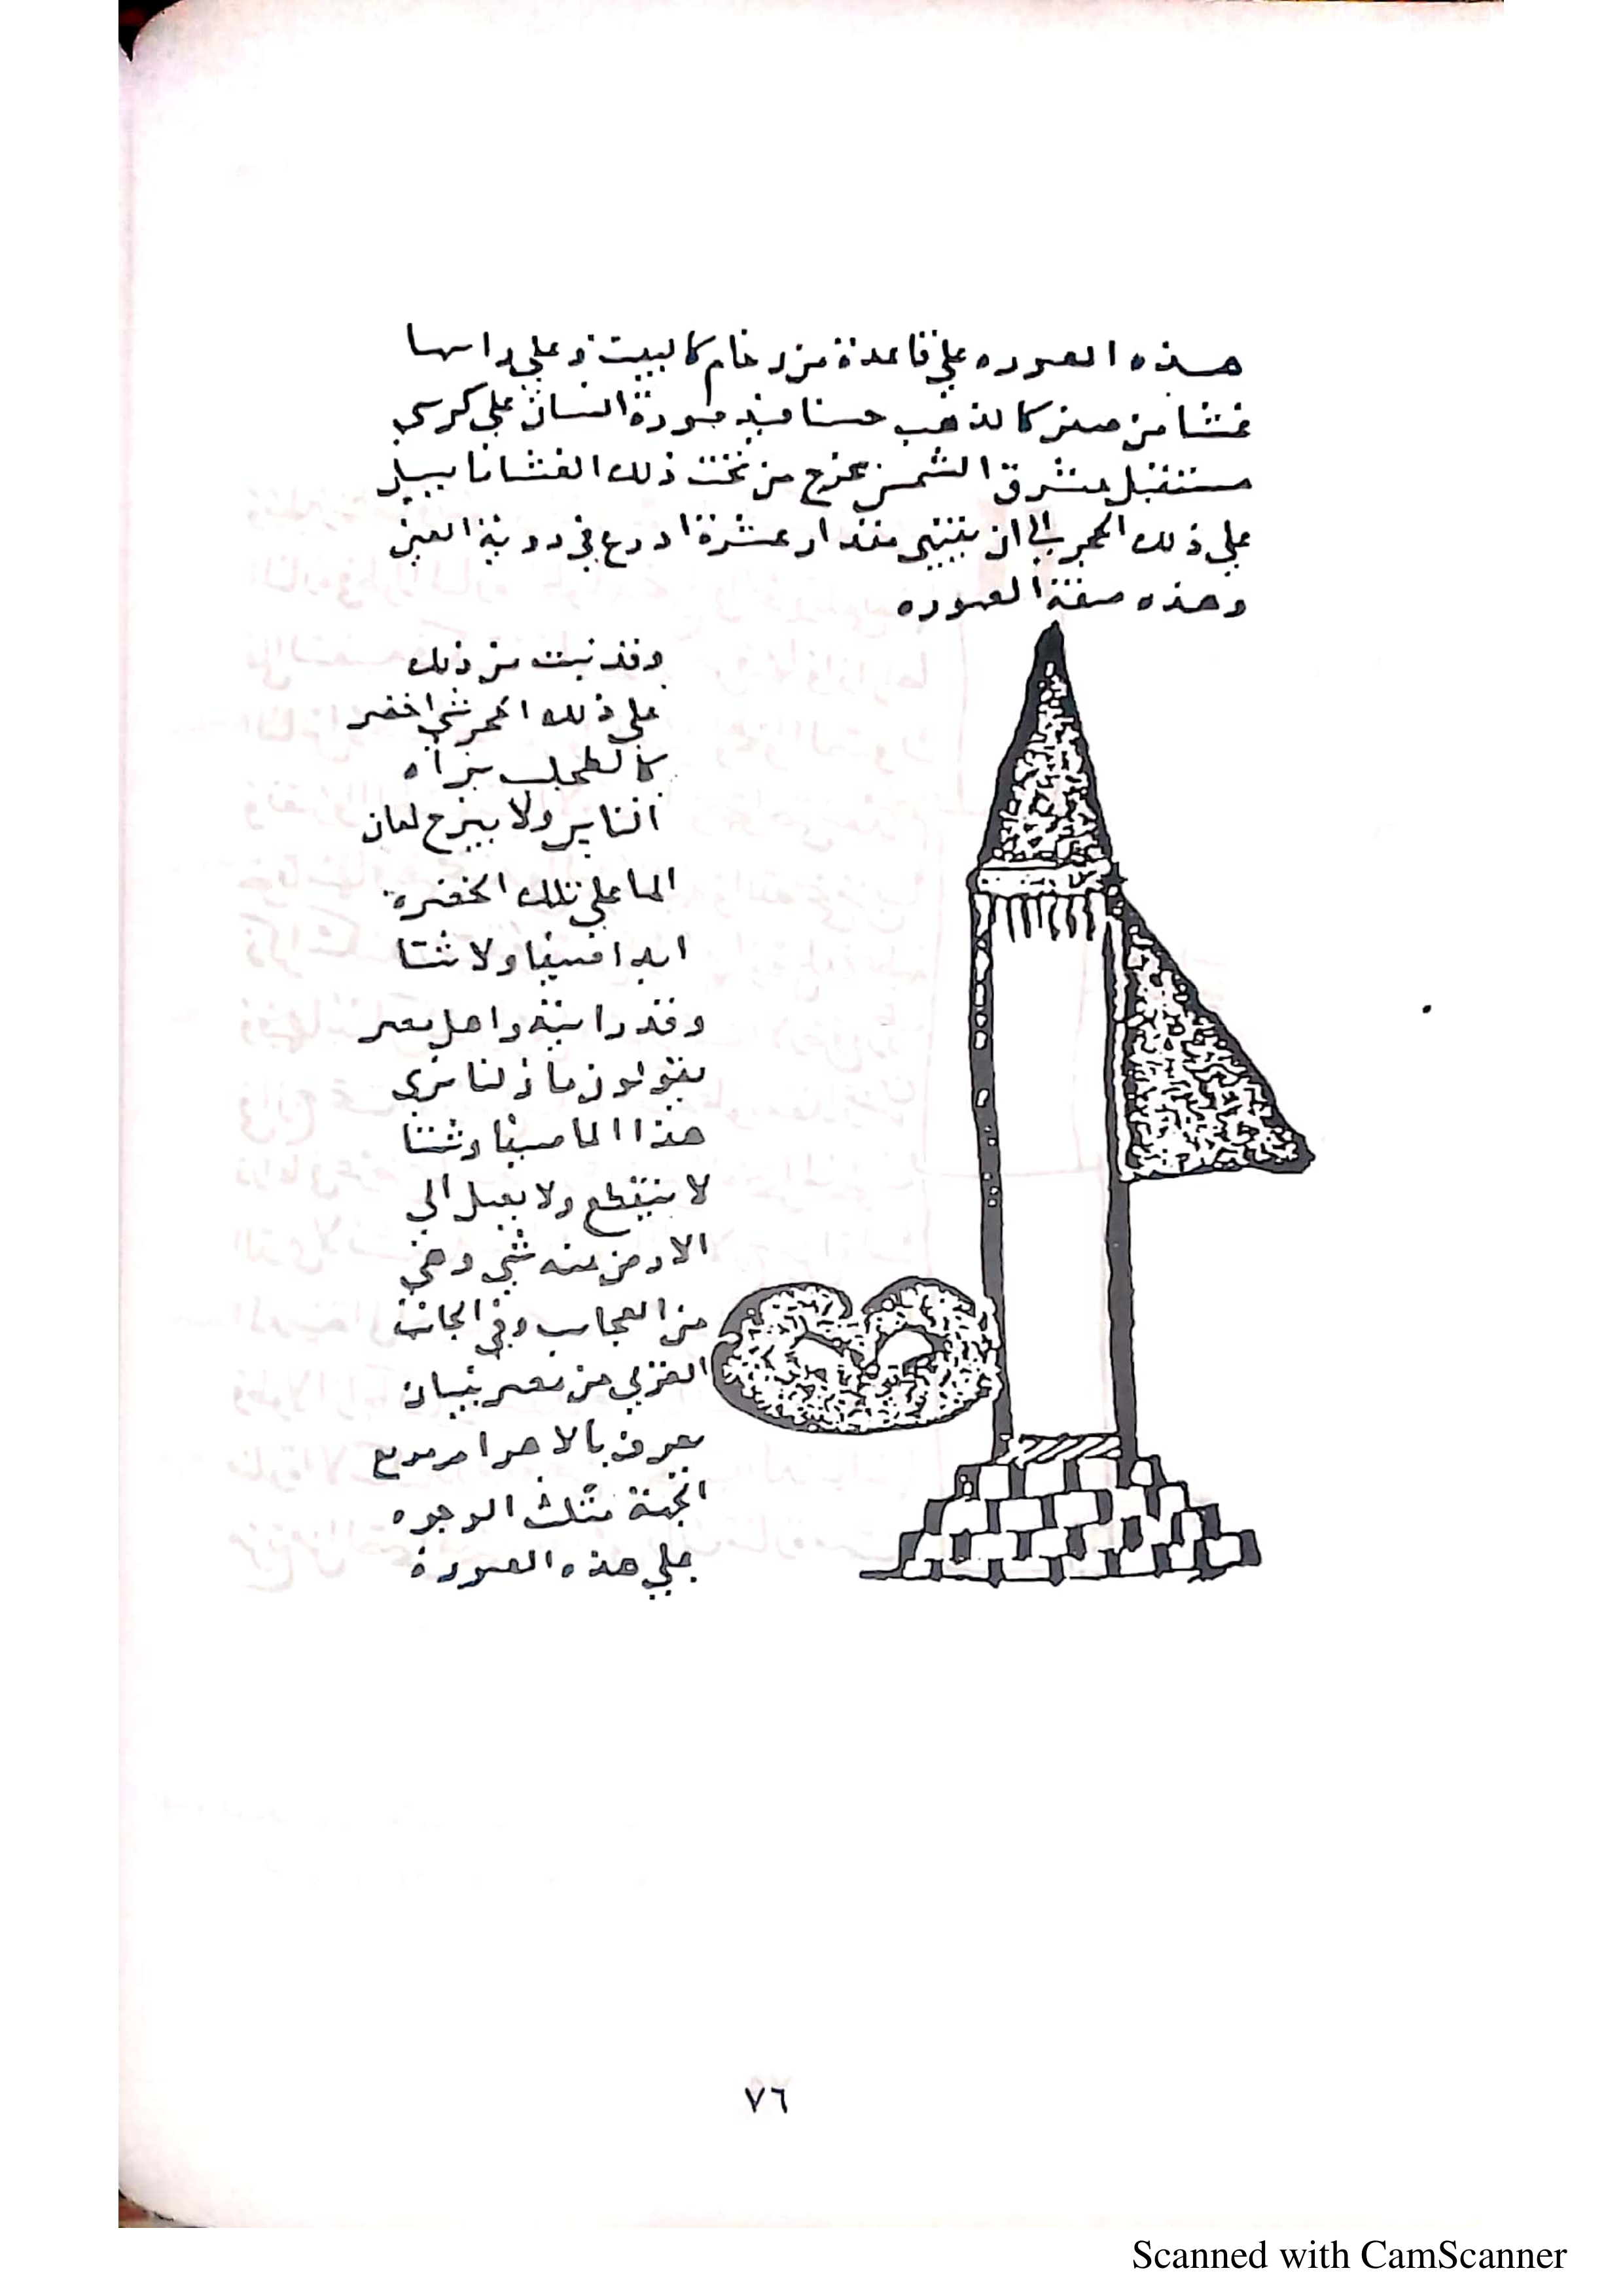 هذه الصوره علي قاعدة من رخام كالبيت وعلي راسها
غشا من صفر كالذهب حسنا فيه صورة انسان علي كرسي
مستقبل مشرق الشمس يخرج من تحت ذلك الغشا ما يسيل
علي ذلك الحجر الي ان ينتهي مقدار عشرة اذرع في روية العين
وهذه صفة الصوره
وقد نبت من ذلك
علي ذلك الحجر شي اخضر
كالطحلب يراه
الناس ولا يبرح لمعان
الما علي تلك الخضرة
ابدا صيفا ولا شتا
وقد رايته واهل مصر
يقولون ما زلنا نري
هذا الما صيفا وشتا
لا ينقطع ولا يصل الي
الارض منه شي وهي
من العجايب وفي الجانب
الغربي من مصر بنيان
يعرف بالاهرام مربع
الجهة مثلث الوجوه
علي هذه الصورة
٧٦
Scanned with CamScanner